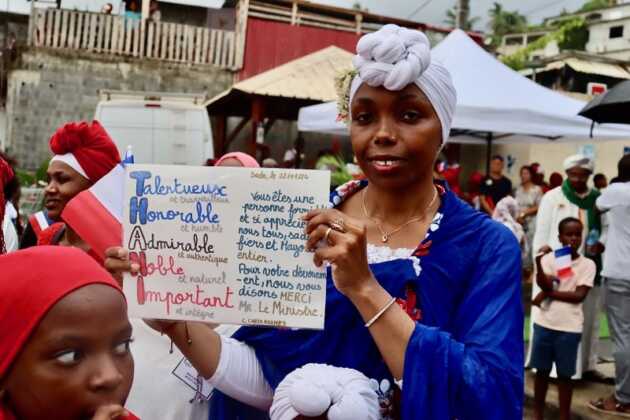 Sada, le
Talentueux
et travailleur
Honorable
et humble
Admirable
et authentique
Noble
et naturel
Important
et intègre
Vous êtes une
personne formi
et si appréci
nous tous, sad
fiers et Maho
entier.
Pour votre dévouem
-ent, nous vous
disons MERCI
Mr Le Ministre.